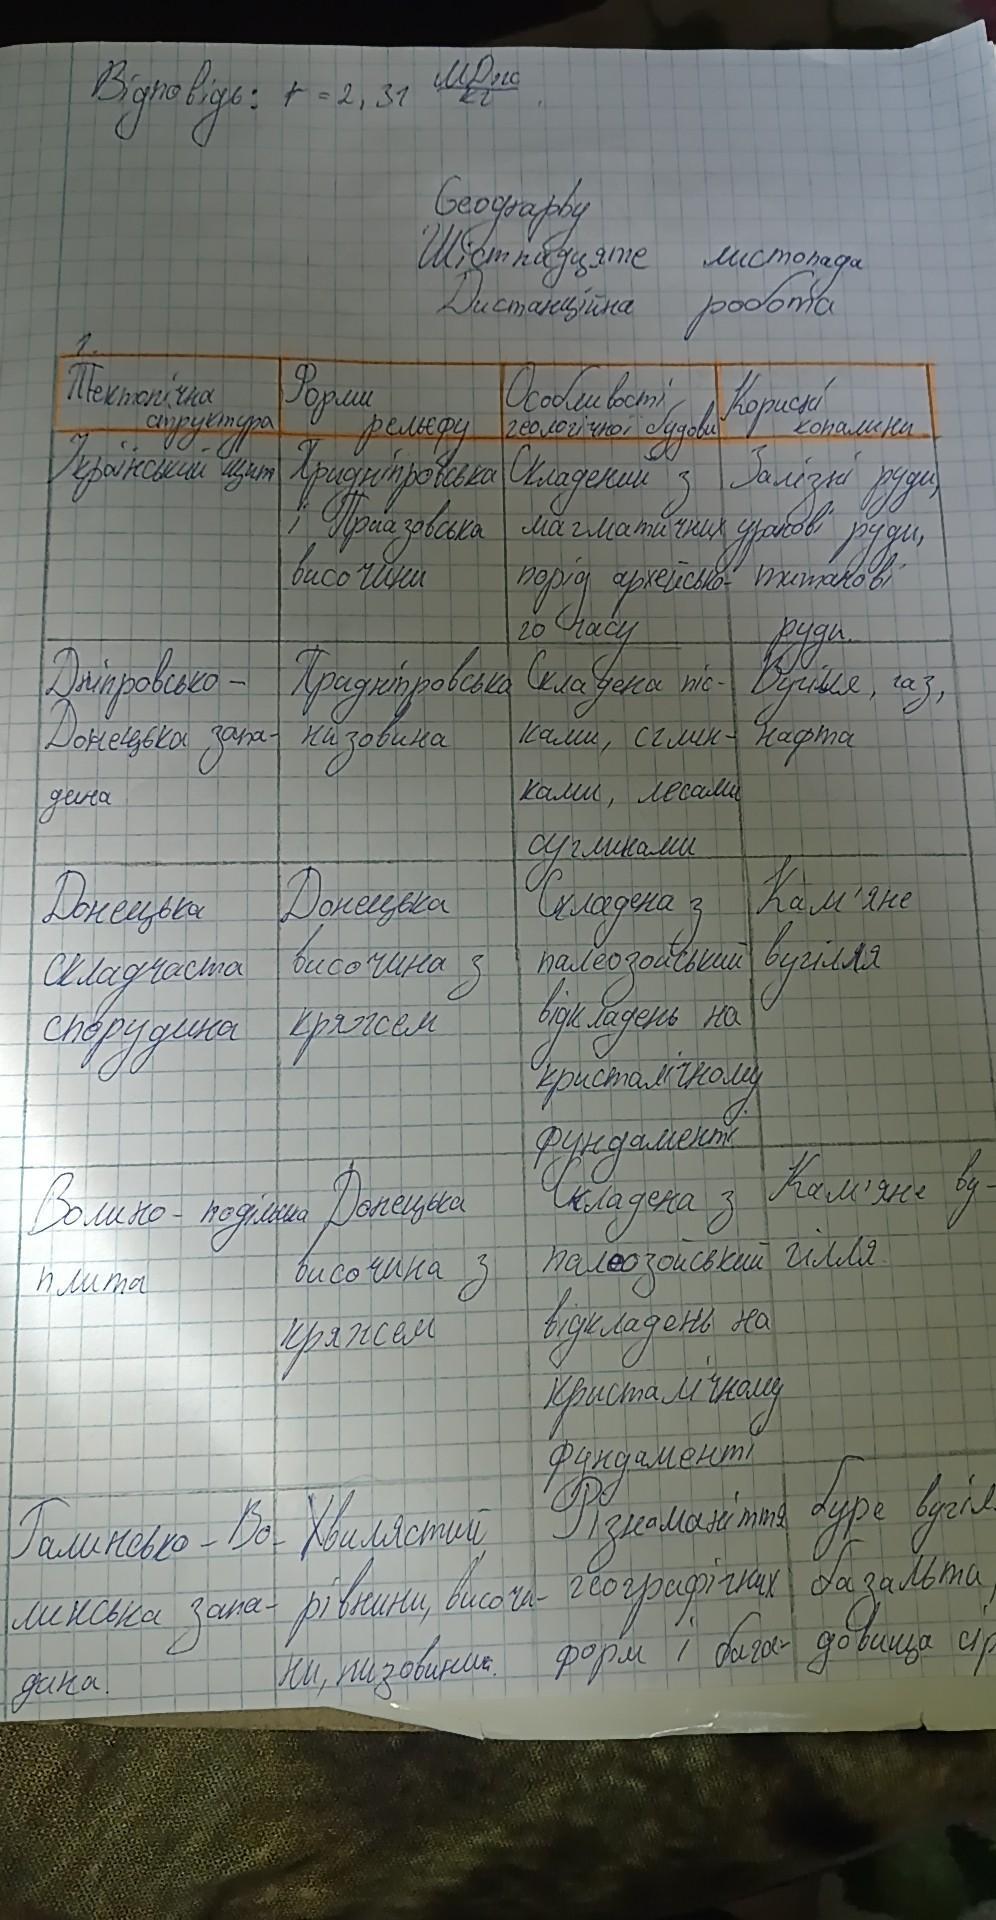 Відповідь: r = 2,31 МДж/кг.
Geography
Шістнадцяте листопада
Дистанційна робота
1.
Тектонічна структура
Форми рельєфу
Особливості геологічної будови
Корисні копалини
Український щит
Придніпровська
і Приазовська
височини
Складений з
магматичних
порід архейсько-
го часу
Залізні руди,
уранові руди,
титанові
руди.
Дніпровсько-
Донецька запа-
дина
Придніпровська
низовина
Складена піс-
ками, сглин-
ками, лесами
суглинами
Вугілля, газ,
нафта
Донецька
складчаста
спорудина
Донецька
височина з
кряжем
Складена з
палеозойський
відкладень на
кристалічному
фундаменті
Кам'яне
вугілля
Волино-подільна
плита
Донецька
височина з
кряжем
Складена з
палеозойський
відкладень на
кристалічному
фундаменті
Кам'яне ву-
гілля.
Галинсько-Во-
линська запа-
дина.
Хвилястий
рівнини, височи-
ни, низовини.
Різнаманіття
географічних
форм і бага-
буре вугіл
базальта,
довища сір